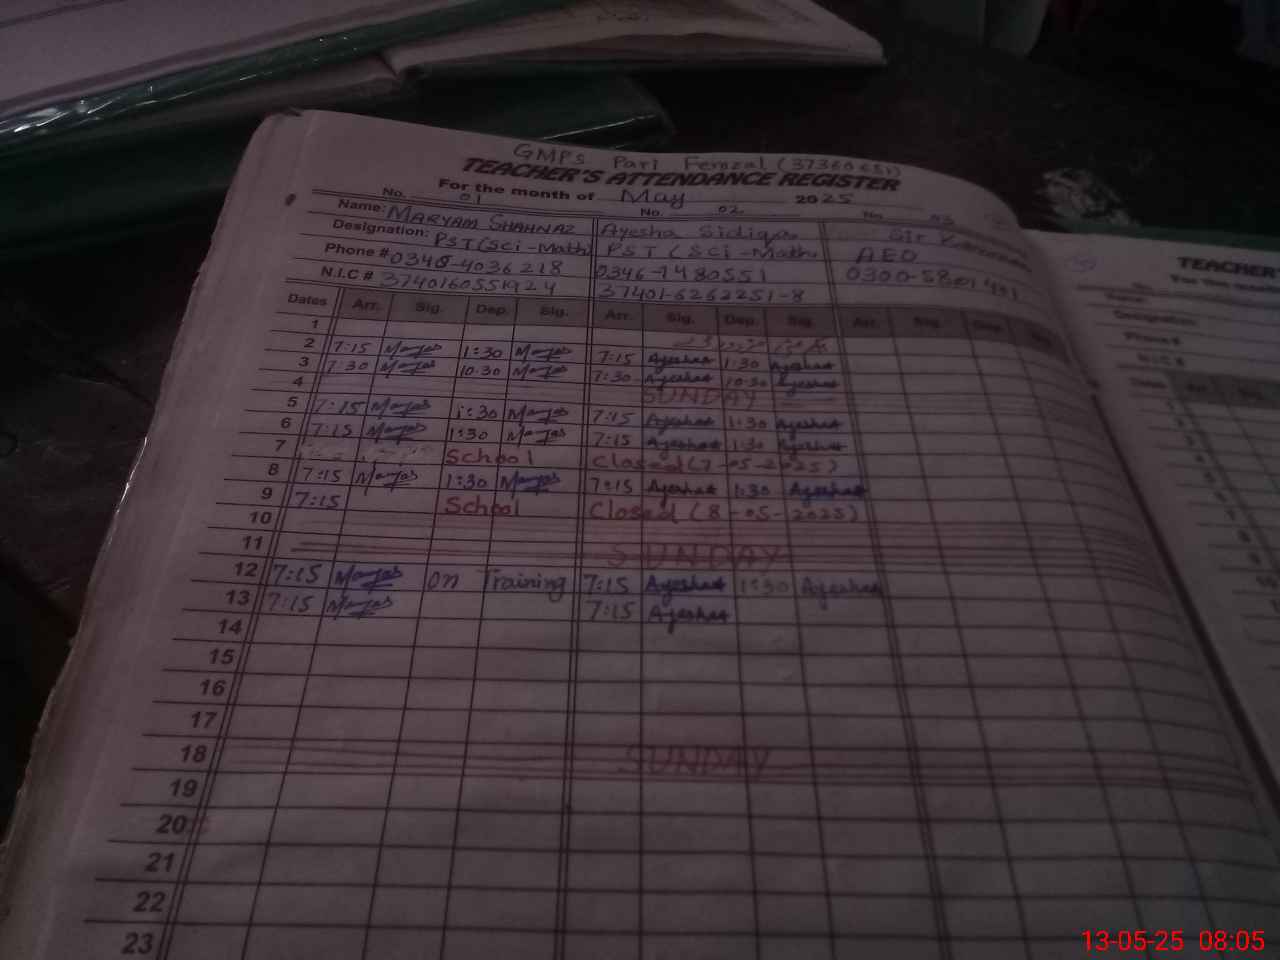 GMPS Pari Ferozal (37360651)
TEACHER'S ATTENDANCE REGISTER
For the month of May 2025
No. 01 No. 02 No. 03
Name: MARYAM SHAHNAZ Ayesha Sidiqa Sir
Designation: PST (Sci-Math) PST (Sci-Math) AEO
Phone # 0348-4036218 0346-1480551
N.I.C # 3740160551924 37401-6262251-8
Dates Arr. Sig. Dep. Sig. Arr. Sig. Dep. Sig. Arr. Sig. Dep.
1
2 7:15 1:30 7:15 Ayesha 1:30 Ayesha
3 7:30 10:30 7:30 Ayesha 10:30 Ayesha
4 SUNDAY
5 7:15 1:30 7:15 Ayesha 1:30 Ayesha
6 7:15 1:30 7:15 Ayesha 1:30 Ayesha
7 School Closed (7-05-2025)
8 7:15 1:30 7:15 Ayesha 1:30 Ayesha
9 7:15 School Closed (8-05-2025)
10
11 SUNDAY
12 7:15 on Training 7:15 Ayesha 1:30 Ayesha
13 7:15 7:15 Ayesha
14
15
16
17
18 SUNDAY
19
20
21
22
23
TEACHER'
For the
Name:
Designation:
Phone #
N.I.C #
Dates
13-05-25 08:05